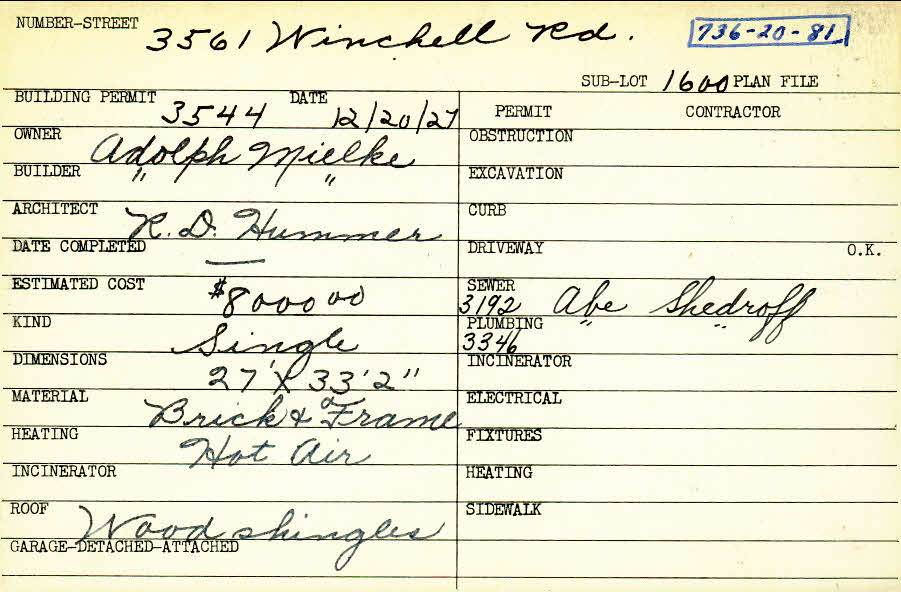 NUMBER-STREET 3561 Winchell Rd. 736-20-81
SUB-LOT 1600 PLAN FILE
BUILDING PERMIT 3544 DATE 12/20/27 PERMIT CONTRACTOR
OWNER Adolph Mielke OBSTRUCTION
BUILDER " " EXCAVATION
ARCHITECT R. D. Hummer CURB
DATE COMPLETED — DRIVEWAY O.K.
ESTIMATED COST $8000 00 SEWER 3192 Abe Shedroff
KIND Single PLUMBING 3346 " "
DIMENSIONS 27' X 33'2" INCINERATOR
MATERIAL Brick & Frame ELECTRICAL
HEATING Hot Air FIXTURES
INCINERATOR HEATING
ROOF Wood shingles SIDEWALK
GARAGE-DETACHED-ATTACHED